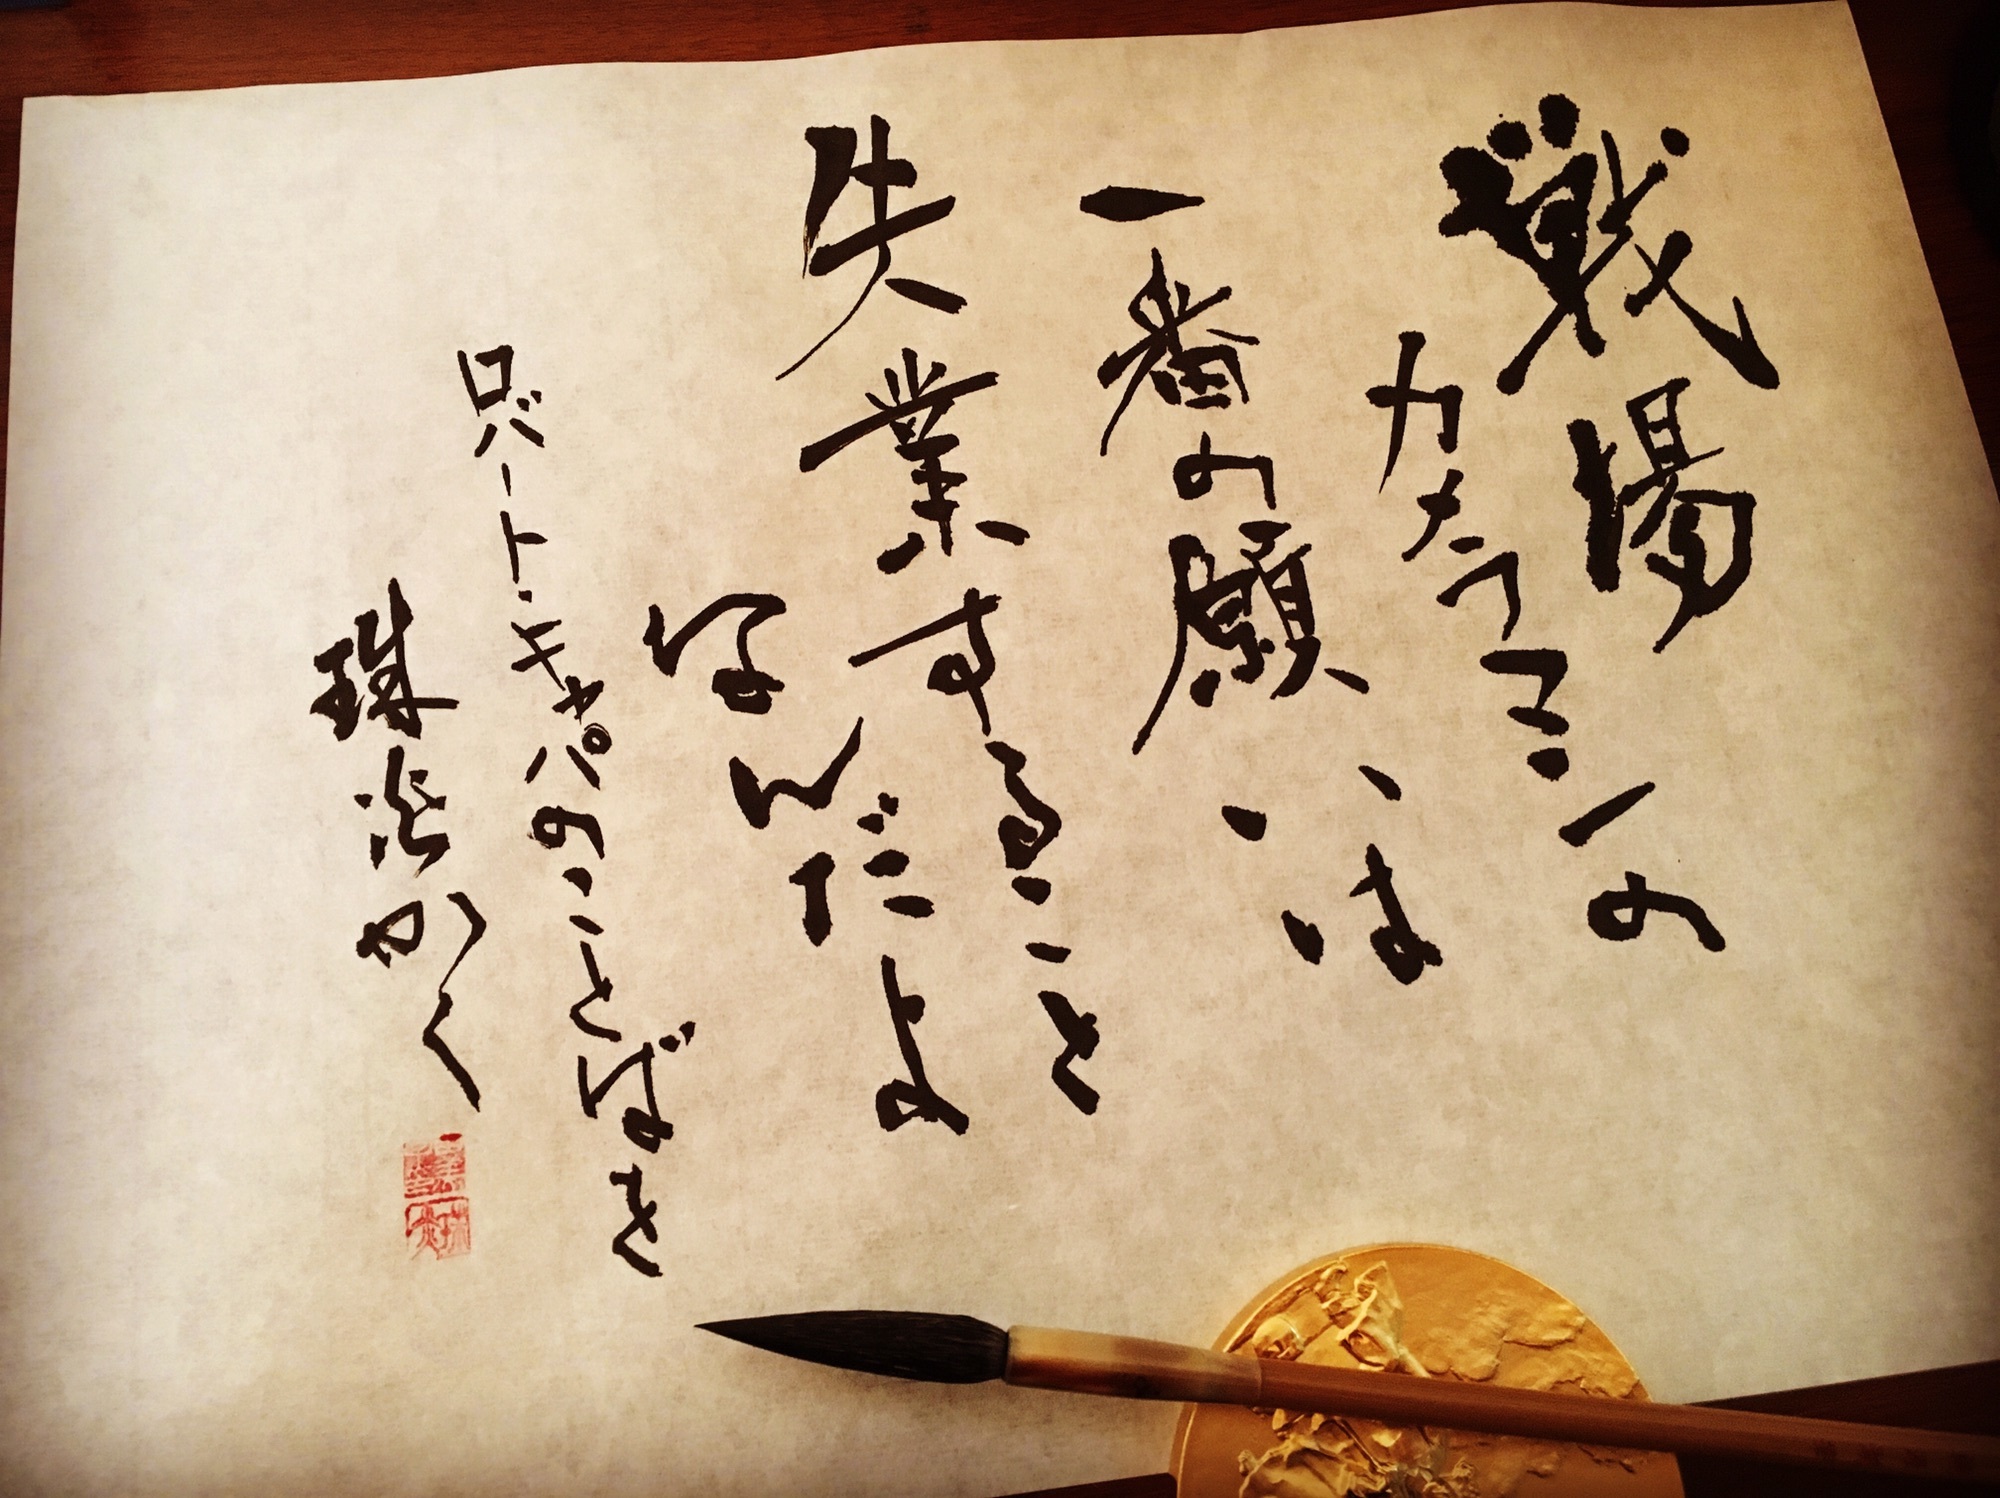 戦場
カメラマンの
一番の願いは
失業すること
なんだよ
ロバート・キャパのことばを
珠光かく